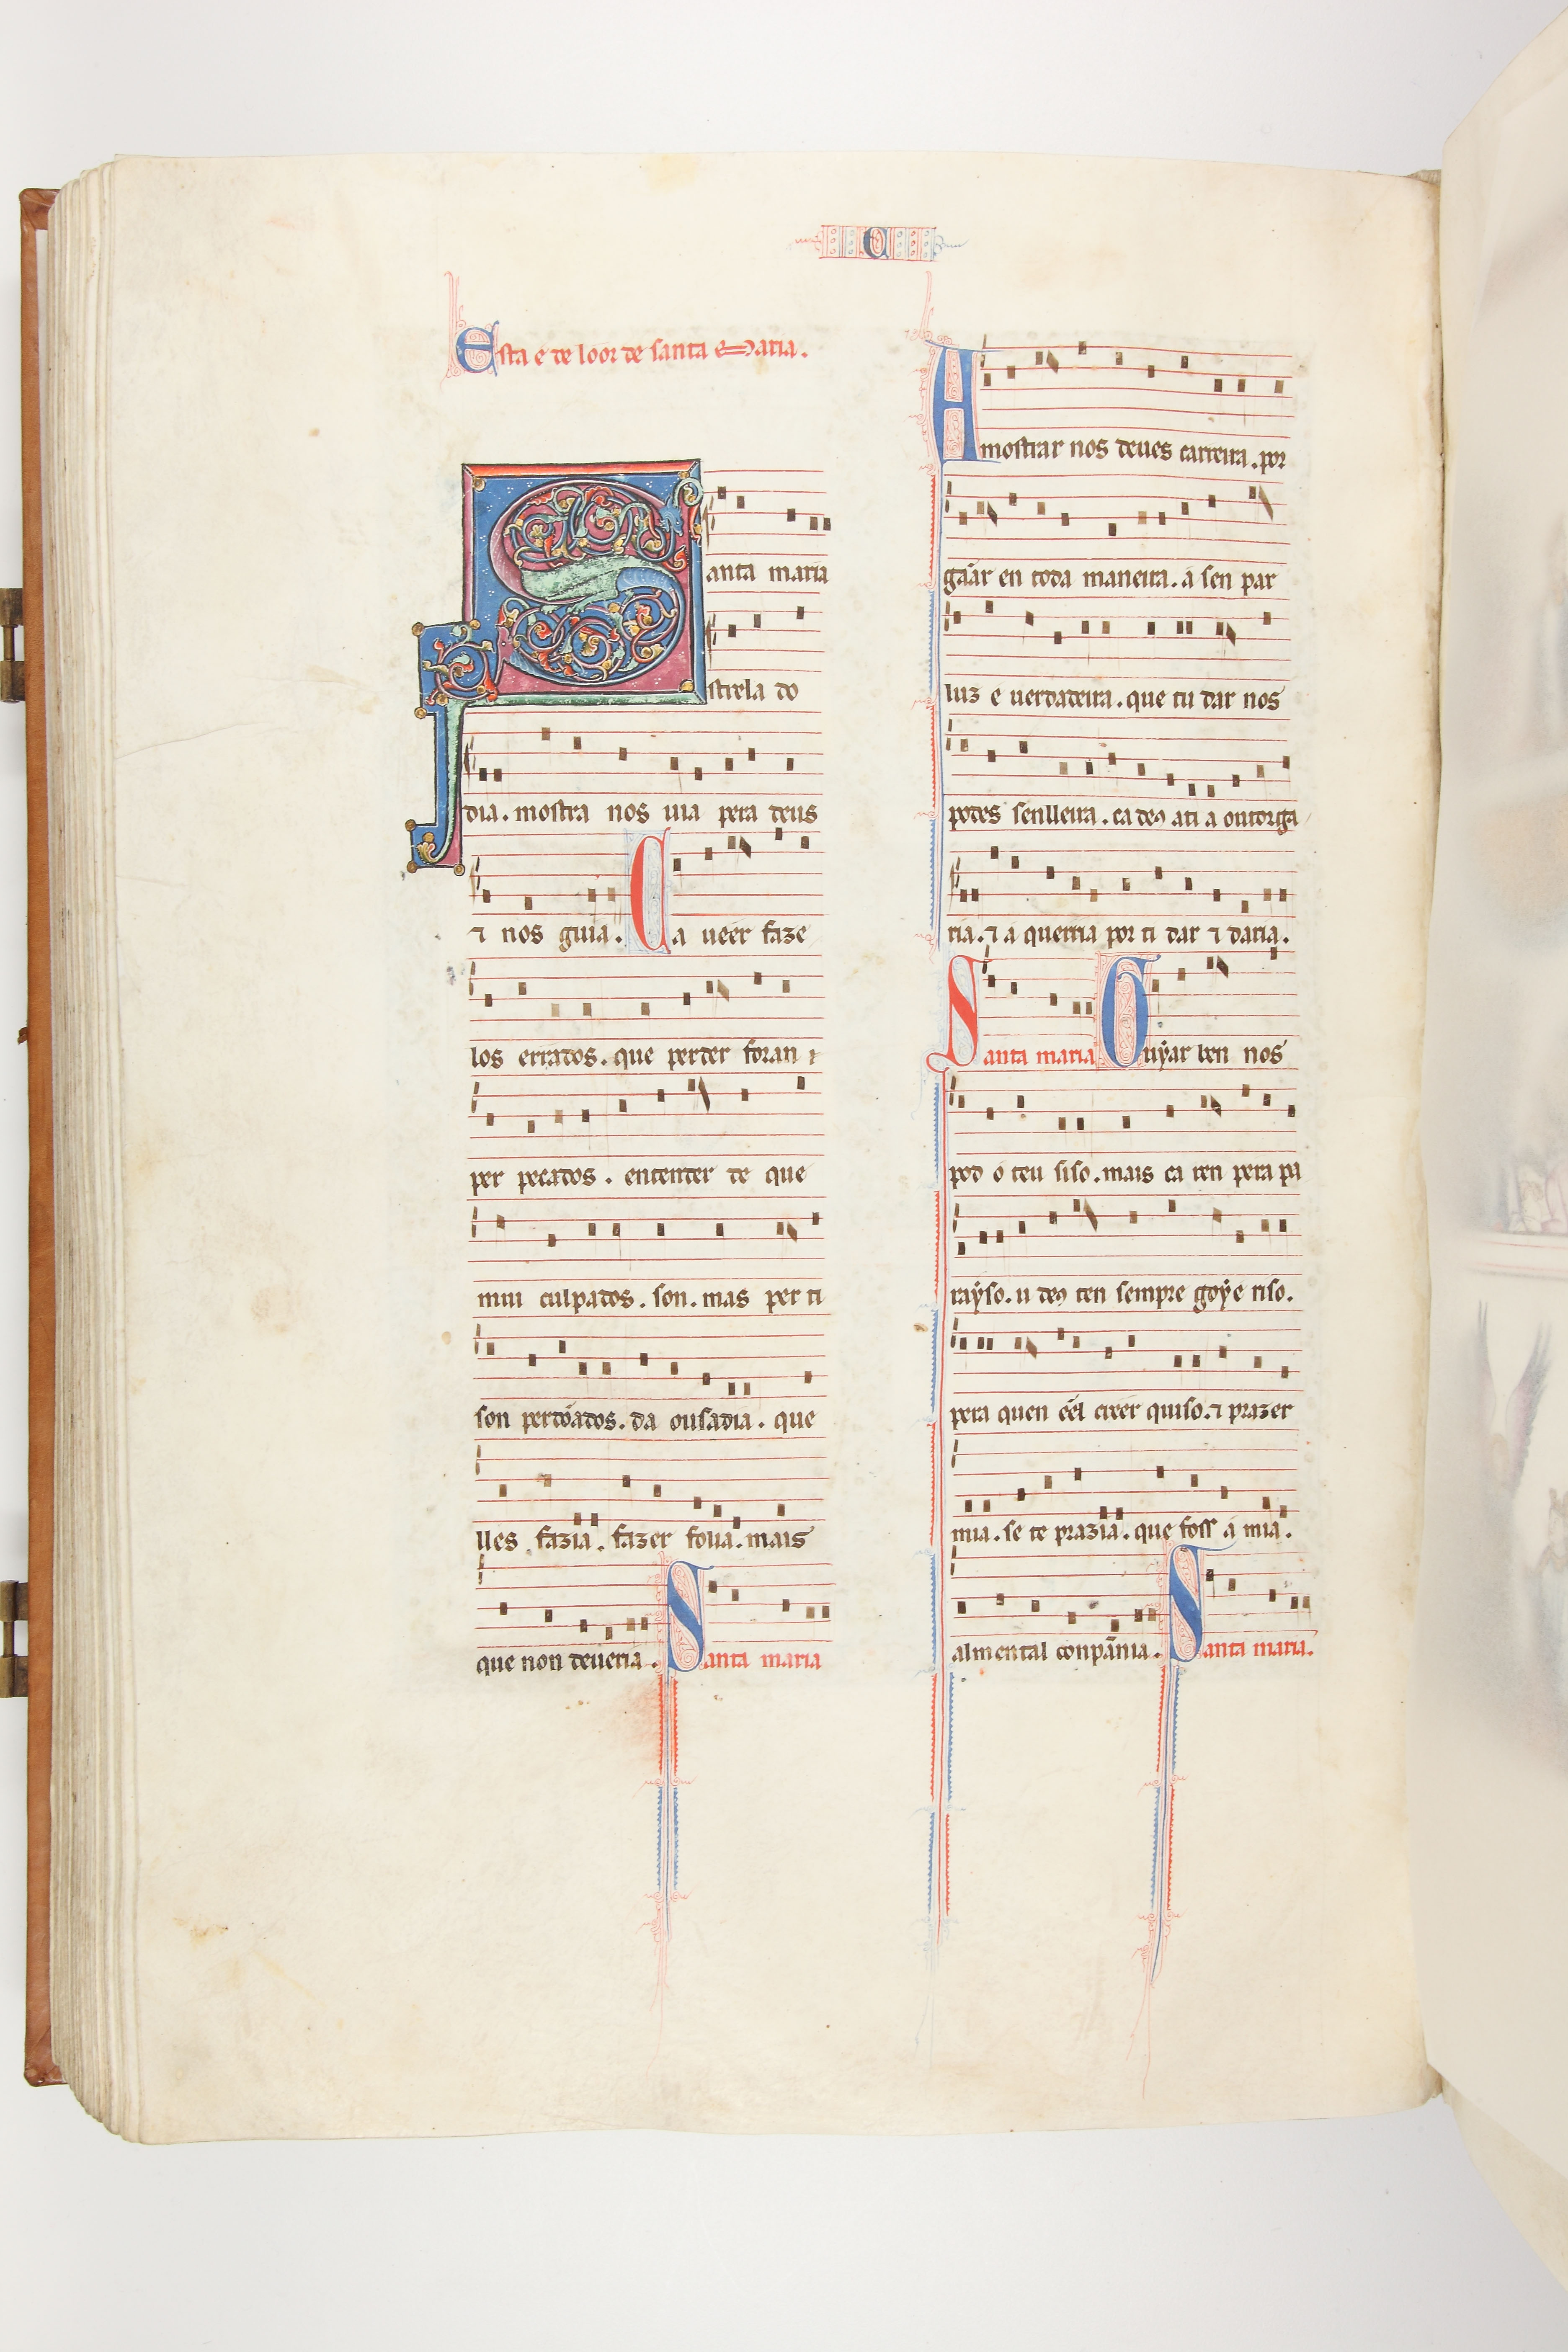 C
Esta e de loor de santa Maria.
Santa maria
strela do
dia. mostra nos uia pera deus
⁊ nos guia. Ca ueer faze
los errados. que perder foran ⁊
per pecados. entender de que
mui culpados. son. mas per ti
son perdõados. da ousadia. que
lles fazia. fazer folia. mais
que non deueria. Santa maria
Amostrar nos deues carreira. por
gãar en toda maneira. a sen par
luz e uerdadeira. que tu dar nos
podes senlleira. ca deꝯ a ti a outorga
ria. ⁊ a querria por ti dar ⁊ daria.
Santa maria Guÿar ben nos
pod o teu siso. mais ca ren pera pa
raÿso. u deꝯ ten sempre goÿe riso.
pera quen e͂el creer quiso. ⁊ prazer
mia. se te prazia. que foss a mia.
alm en tal conpãnia. Santa maria.